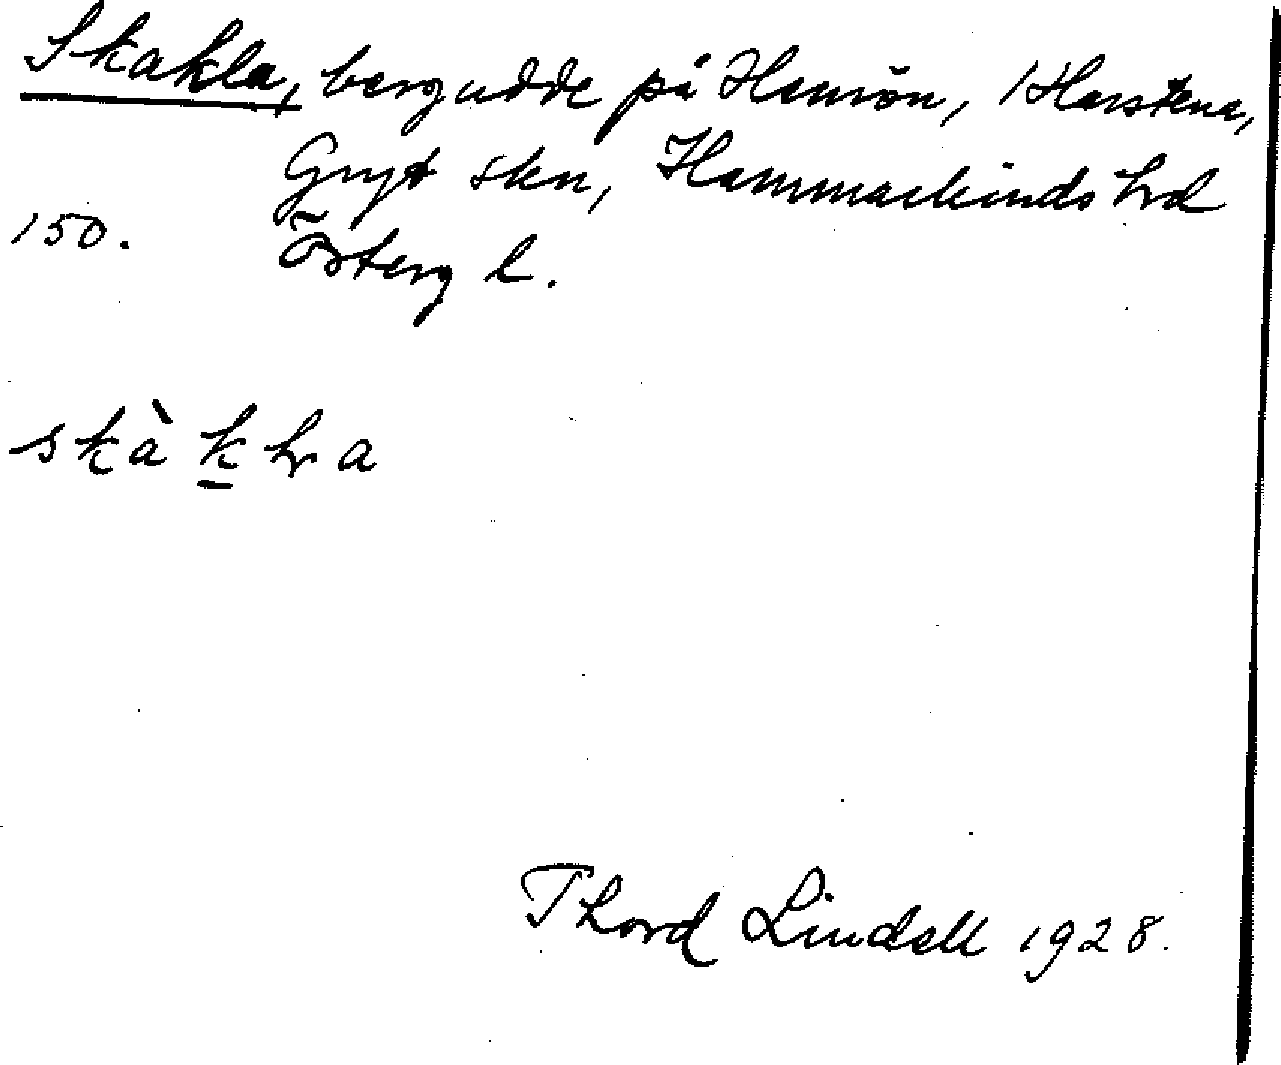 Skakla, bergudde på Hamrön, Harstena,
Gryt skn, Hammarkinds hrd
150. Österg l.
skàk̲hra
Thord Lindell 1928.